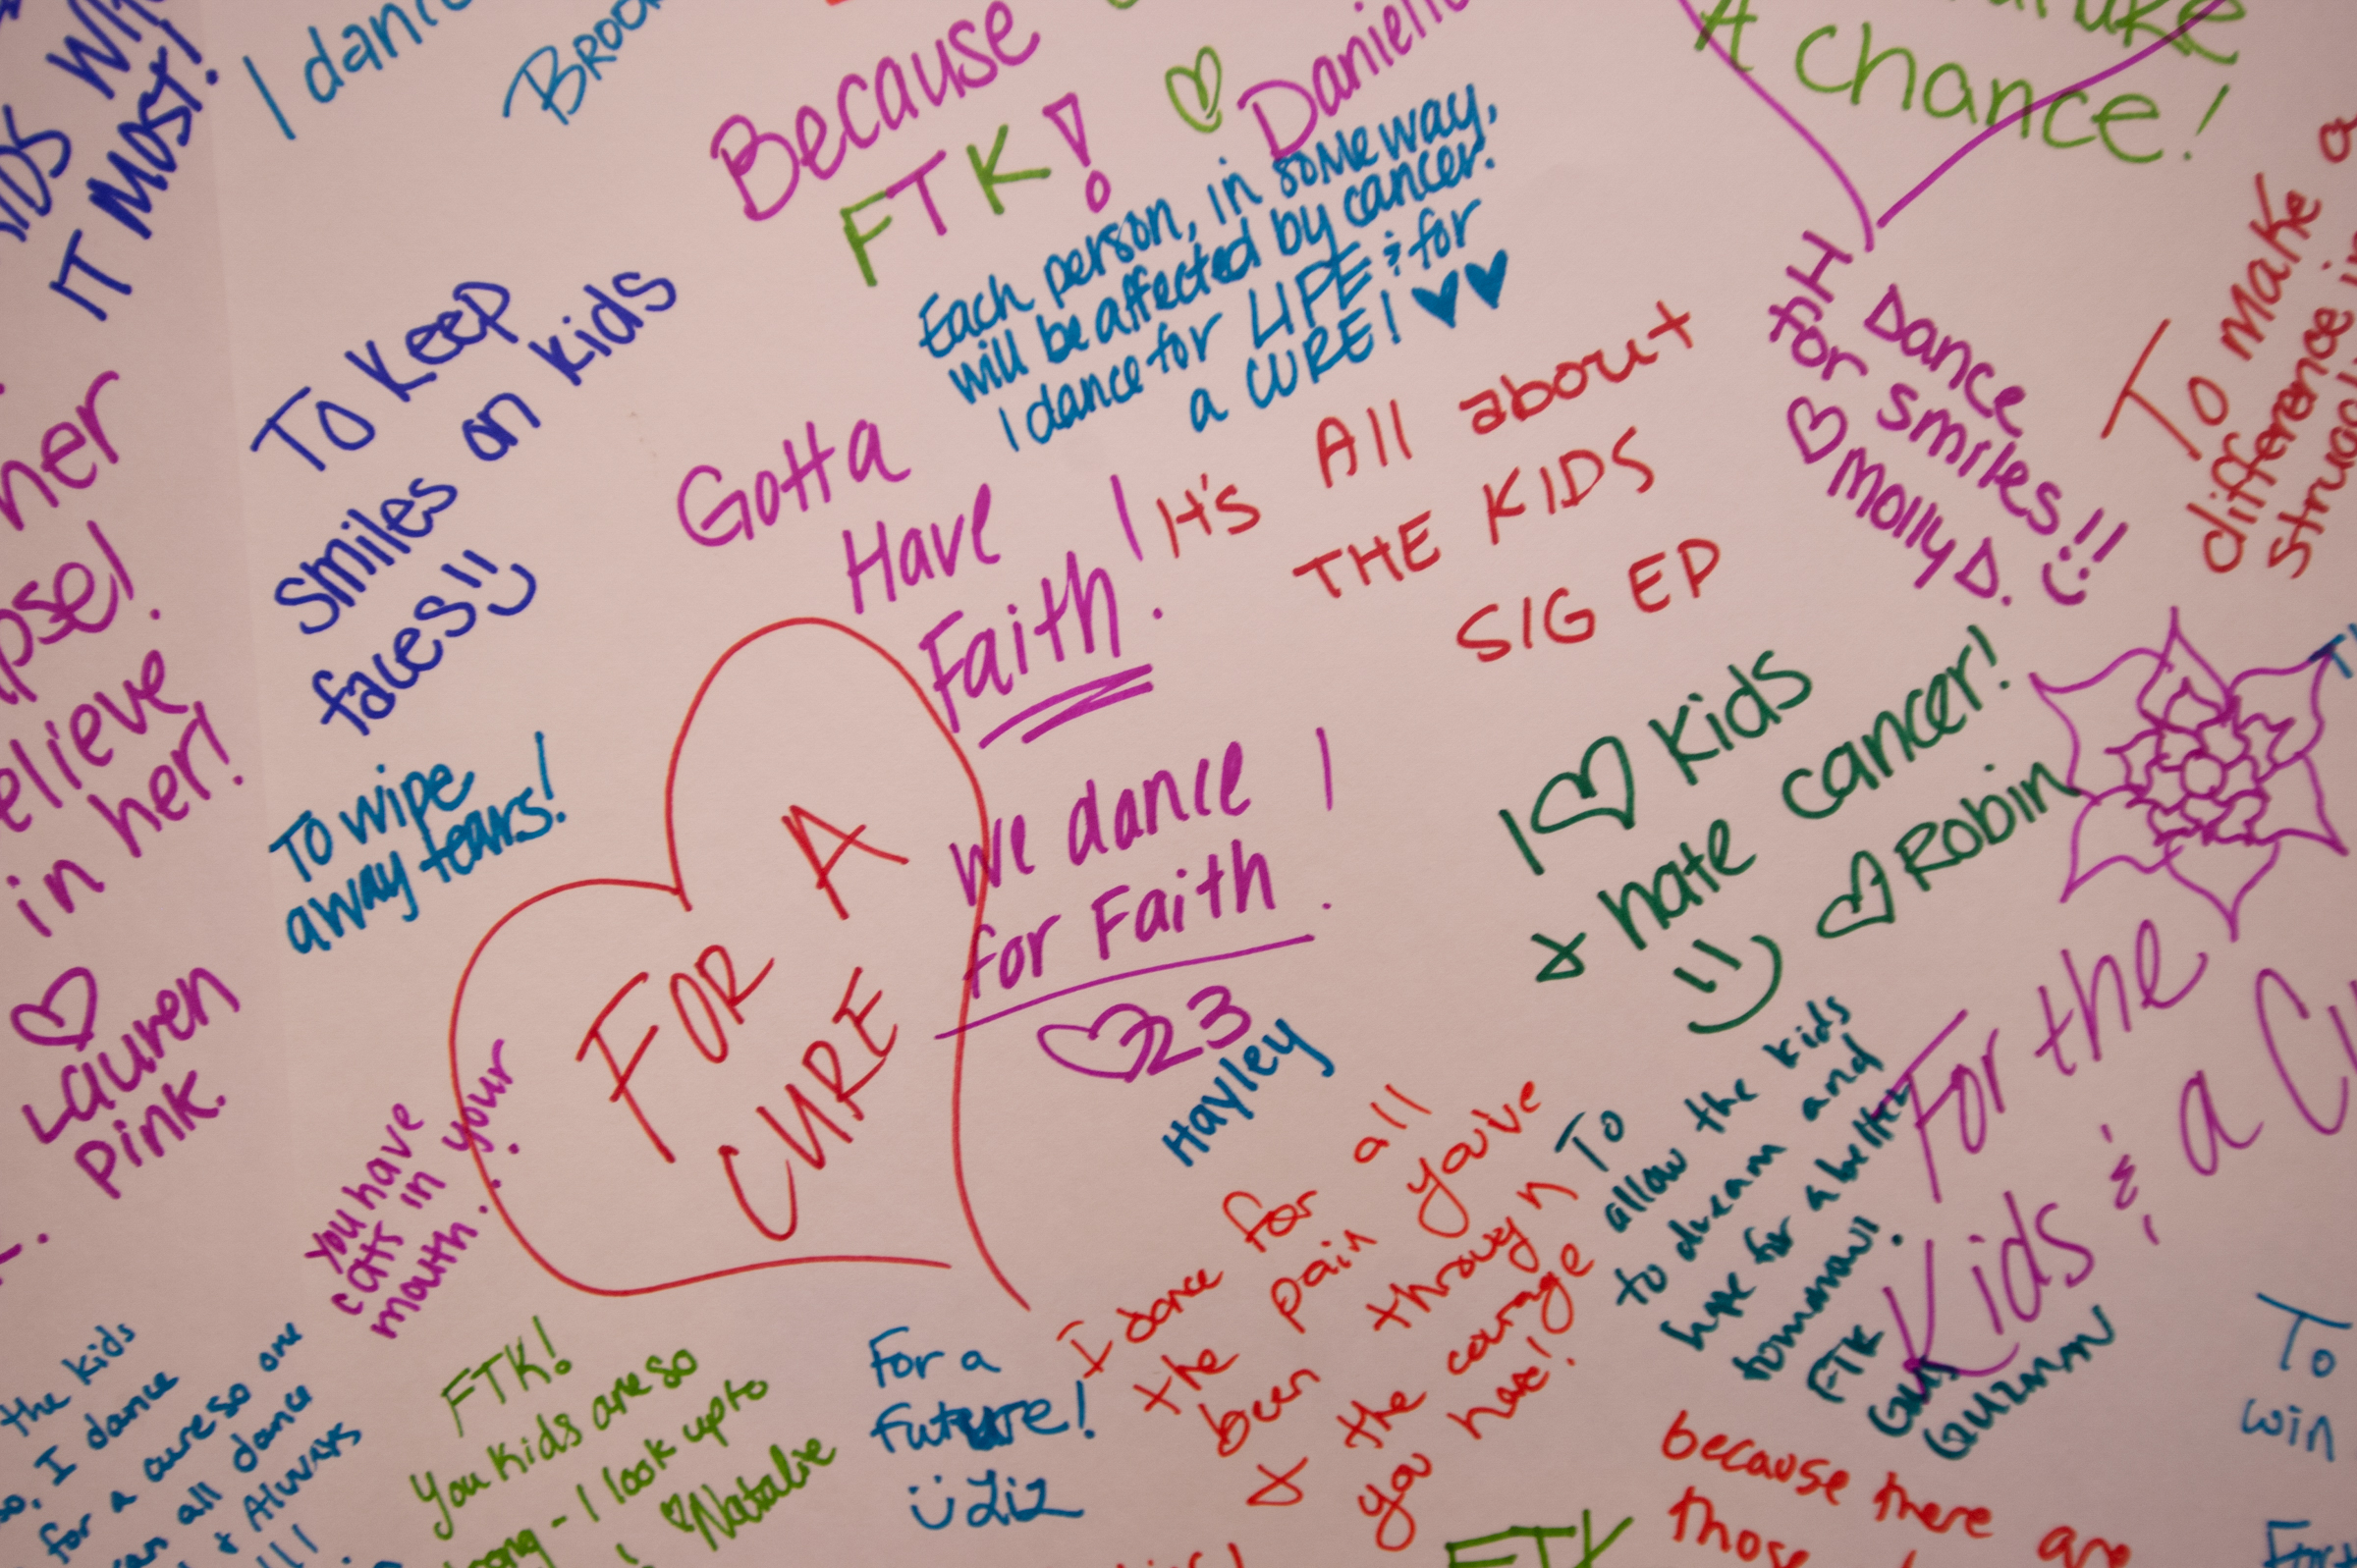 IT MOST!
I dance
Because
FTK!
Danielle
A chance!
Each person, in some way,
will be affected by cancer.
I dance for LIFE & for
a CURE!
To Keep
smiles on kids
faces
Gotta
Have
Faith!
It's All about
THE KIDS
SIG EP
Dance
for smiles!!
Molly D.
To make a
difference in
her
believe
in her!
Lauren
Pink.
To wipe
away tears!
FOR A
CURE
We dance
for Faith!
23
Hayley
I ♡ Kids
& hate cancer!
♡ Robin
For the
Kids & a
You have
cats in your
mouth...
I dance for all
the pain you've
been through
& the courage
you have!
To
allow the kids
to dream and
hope for a better
tomorrow!
FTK
Gus
Guzman
To
win
the kids
so, I dance
for a cure so one
can all dance
& Always
FTK!
You kids are so
strong - I look up to
♡ Natalie
For a
future!
Liz
because there are
those
FTK